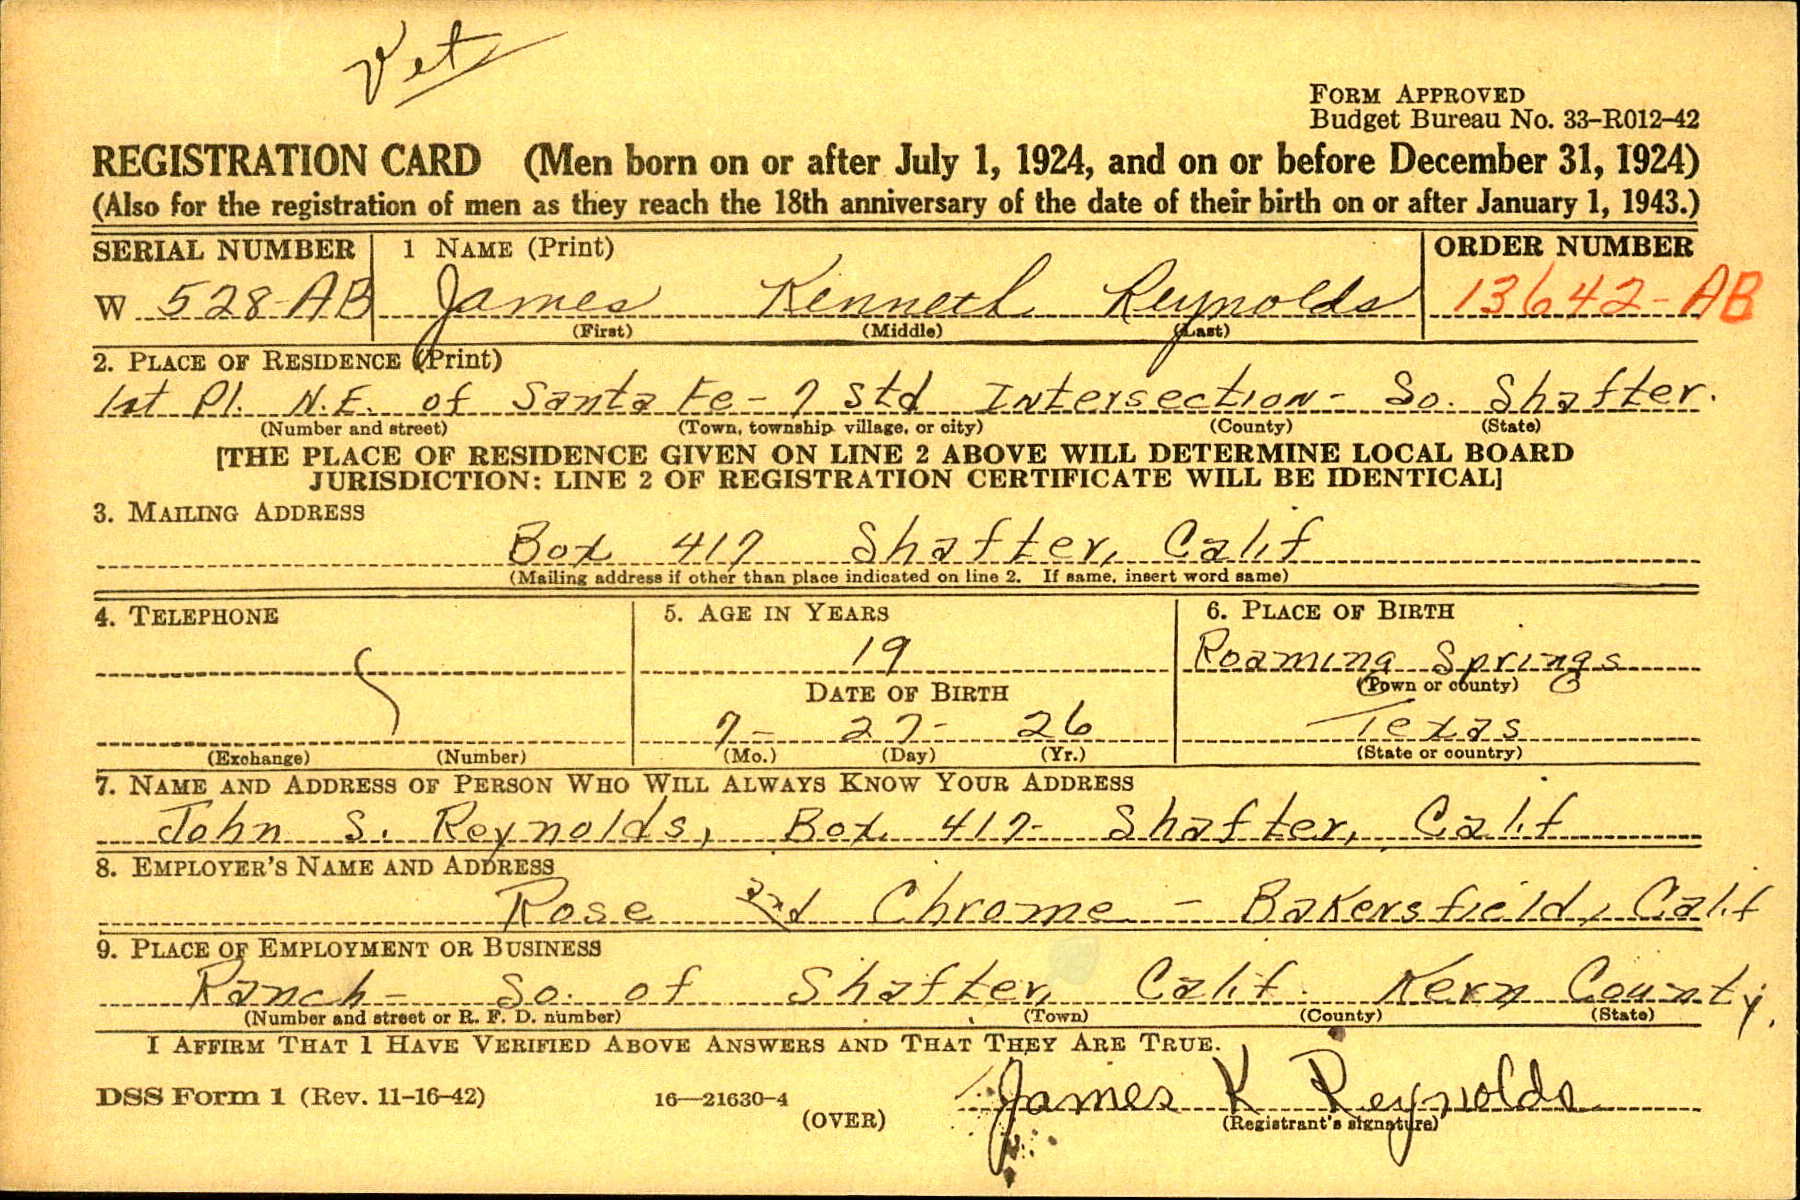 Vet
FORM APPROVED
Budget Bureau No. 33-R012-42
REGISTRATION CARD (Men born on or after July 1, 1924, and on or before December 31, 1924)
(Also for the registration of men as they reach the 18th anniversary of the date of their birth on or after January 1, 1943.)
SERIAL NUMBER 1 NAME (Print) ORDER NUMBER
W 528-AB James Kenneth Reynolds 13642-AB
(First) (Middle) (Last)
2. PLACE OF RESIDENCE (Print)
1st Pl. N.E. of Santa Fe - 7 Std Intersection - So. Shafter.
(Number and street) (Town, township, village, or city) (County) (State)
[THE PLACE OF RESIDENCE GIVEN ON LINE 2 ABOVE WILL DETERMINE LOCAL BOARD
JURISDICTION: LINE 2 OF REGISTRATION CERTIFICATE WILL BE IDENTICAL]
3. MAILING ADDRESS
Box 417 Shafter, Calif
(Mailing address if other than place indicated on line 2. If same, insert word same)
4. TELEPHONE 5. AGE IN YEARS 6. PLACE OF BIRTH
19 Roaming Springs
DATE OF BIRTH (Town or county)
7- 27- 26 Texas
(Exchange) (Number) (Mo.) (Day) (Yr.) (State or country)
7. NAME AND ADDRESS OF PERSON WHO WILL ALWAYS KNOW YOUR ADDRESS
John S. Reynolds, Box 417- Shafter, Calif
8. EMPLOYER'S NAME AND ADDRESS
Rose and Chrome - Bakersfield, Calif
9. PLACE OF EMPLOYMENT OR BUSINESS
Ranch - So. of Shafter, Calif. Kern County.
(Number and street or R. F. D. number) (Town) (County) (State)
I AFFIRM THAT I HAVE VERIFIED ABOVE ANSWERS AND THAT THEY ARE TRUE.
DSS Form 1 (Rev. 11-16-42) 16—21630-4 James K Reynolds
(OVER) (Registrant's signature)